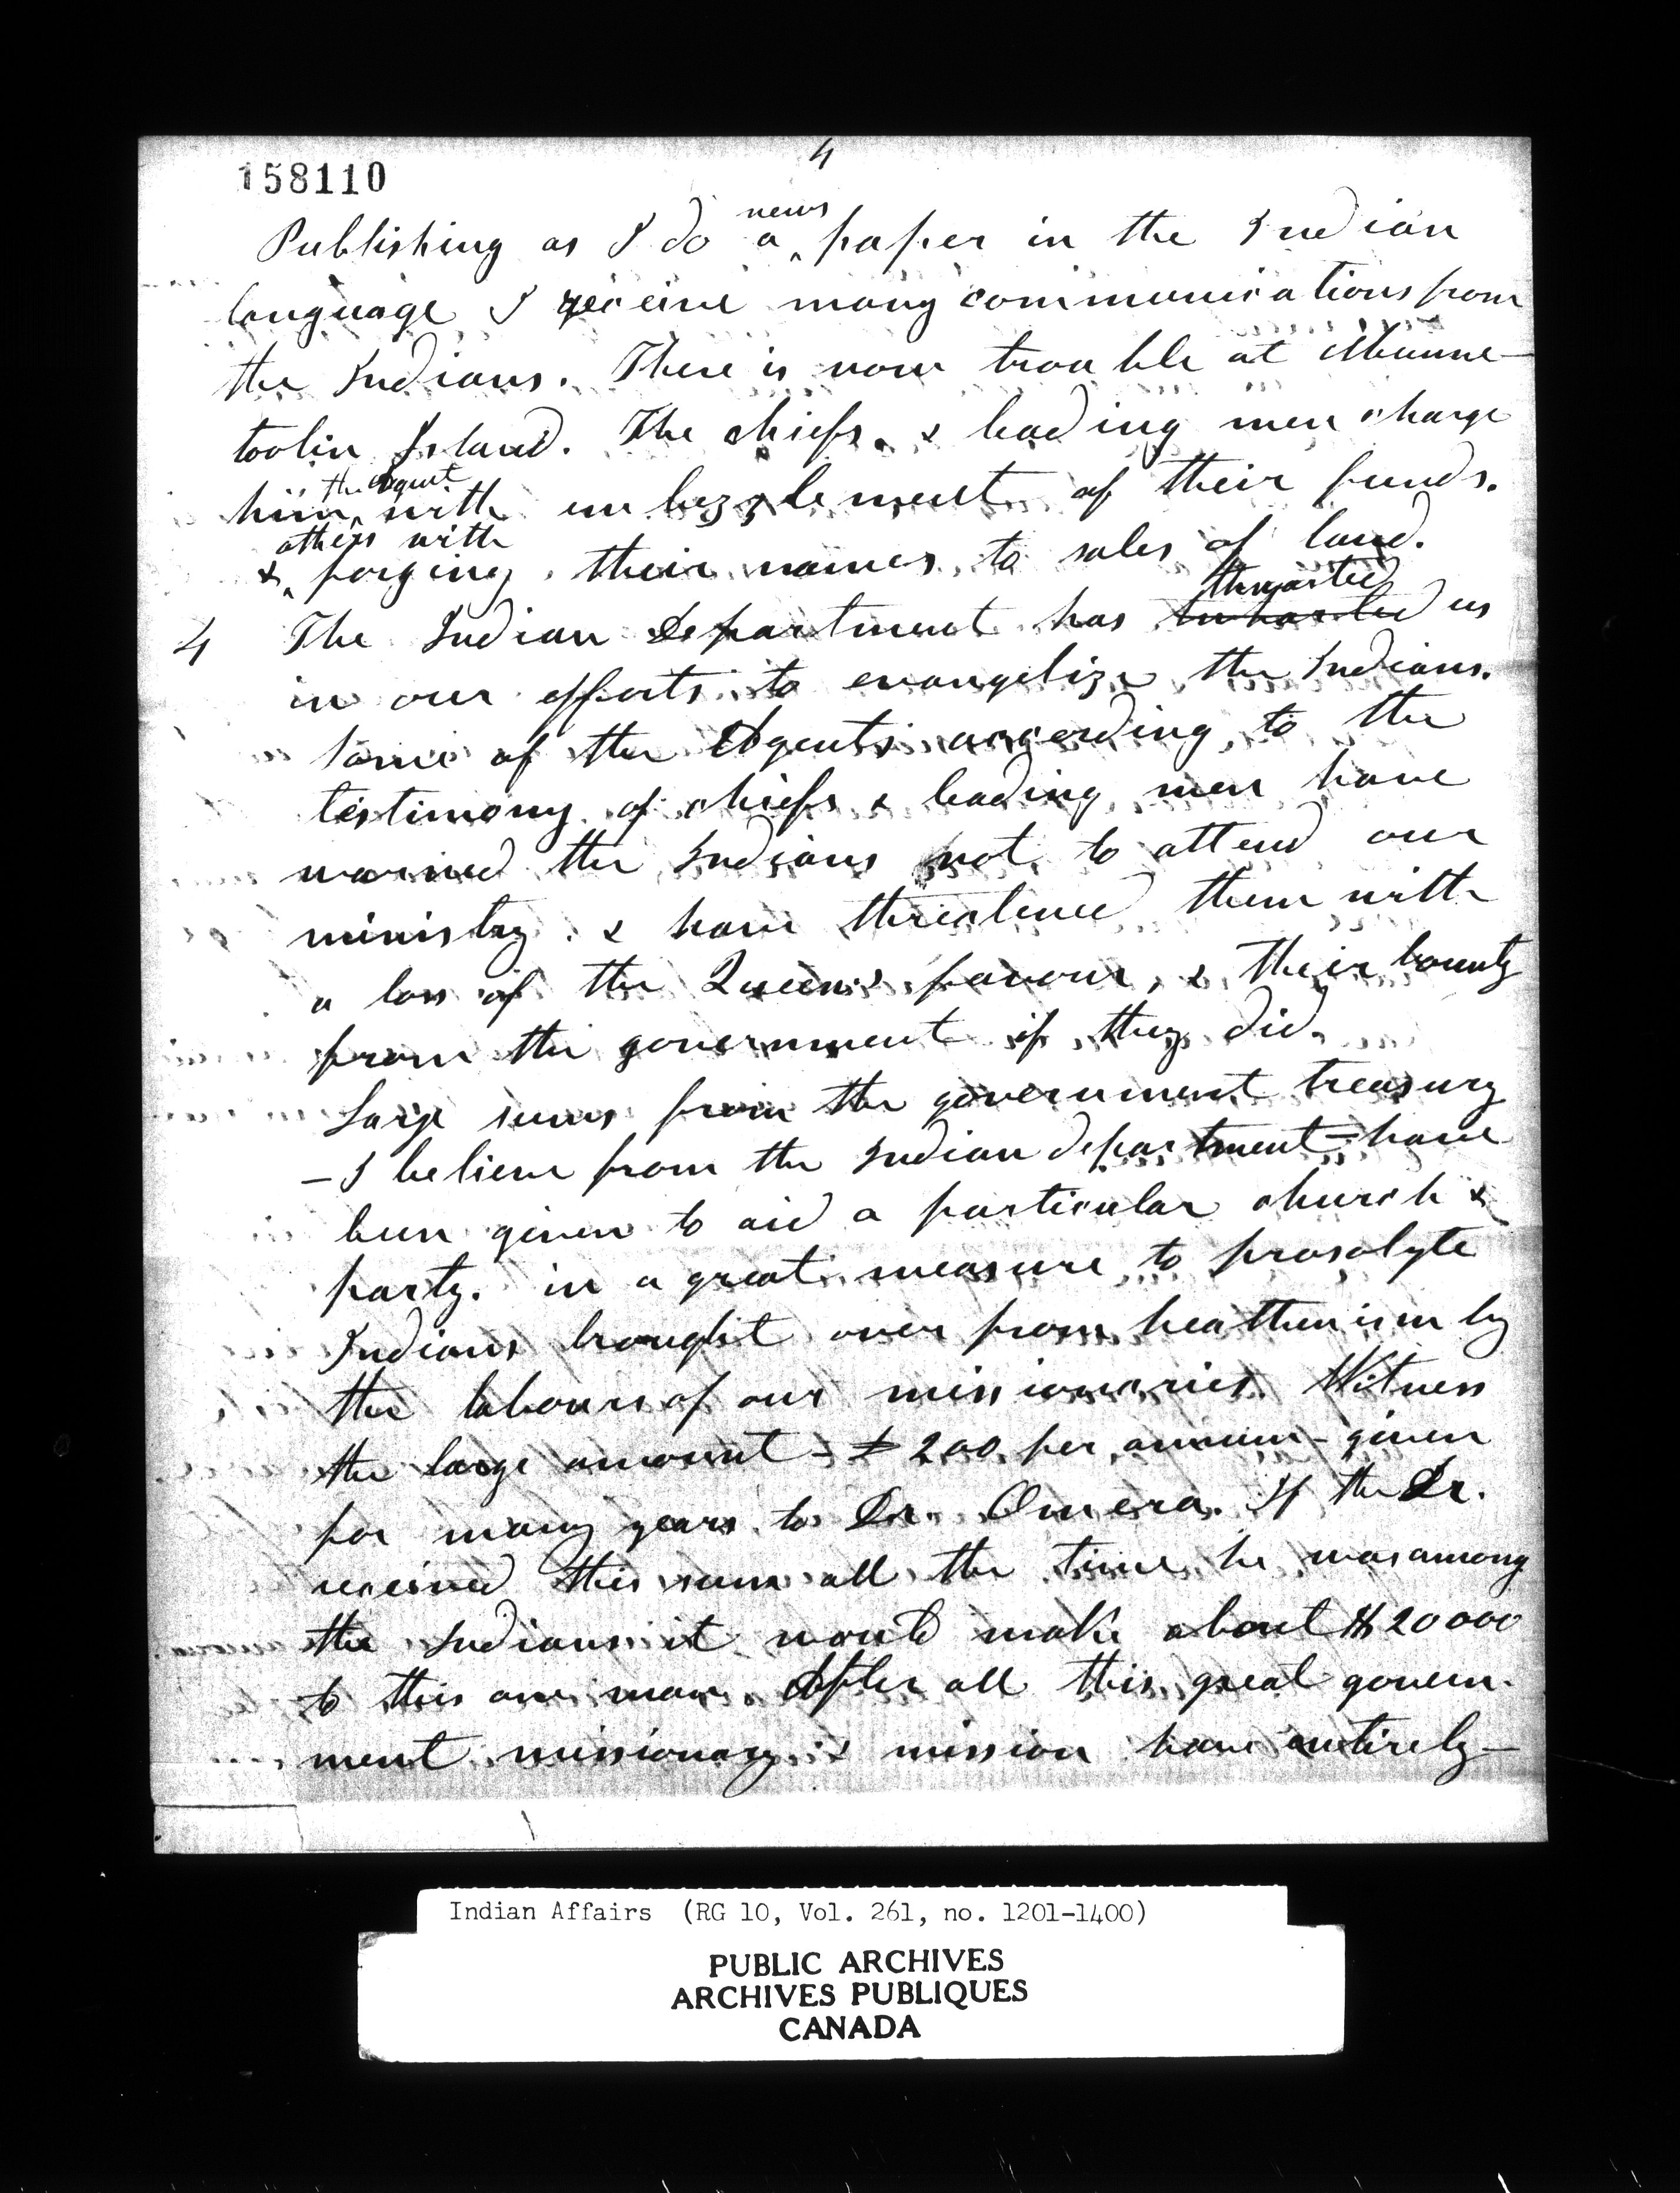 4
158110
Publishing as I do a news paper in the Indian
language I receive many communications from
the Indians. There is now trouble at Manne-
toolin Island. The chiefs & leading men charge
him the Agent with embezzlement of their funds.
& others with forging their names to sales of land.
4 The Indian Department has thwarted us
in our efforts to evangelize the Indians.
Some of the Agents according to the
testimony of chiefs & leading men have
warned the Indians not to attend our
ministry & have threatened them with
a loss of the Queen's favour, & their bounty
from the government if they did.
Large sums from the government treasury
- I believe from the Indian department - have
been given to aid a particular church &
party. in a great measure to prosolyte
Indians brought over from heathenism by
the labours of our missionaries. Witness
the large amount - £ 200 per annum - given
for many years to Dr. Omera. If the Dr.
received this sum all the time he was among
the Indians it would make about $20000
to this one man. After all this great govern-
ment missionary & mission have entirely-
Indian Affairs (RG 10, Vol. 261, no. 1201-1400)
PUBLIC ARCHIVES
ARCHIVES PUBLIQUES
CANADA